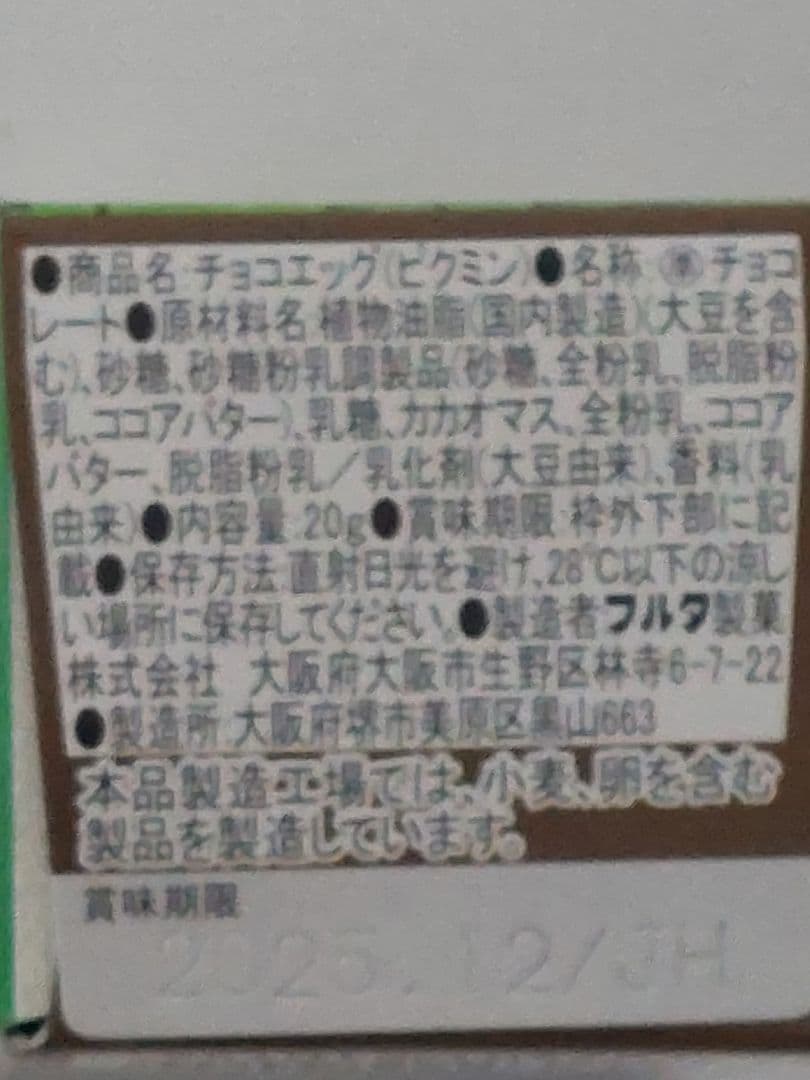 ●商品名:チョコエッグ(ピクミン)●名称:準チョコ
レート●原材料名:植物油脂(国内製造)(大豆を含
む)、砂糖、砂糖粉乳調製品(砂糖、全粉乳、脱脂粉
乳、ココアバター)、乳糖、カカオマス、全粉乳、ココア
バター、脱脂粉乳/乳化剤(大豆由来)、香料(乳
由来)●内容量:20g●賞味期限:枠外下部に記
載●保存方法:直射日光を避け、28℃以下の涼し
い場所に保存してください。●製造者:フルタ製菓
株式会社 大阪府大阪市生野区林寺6-7-22
●製造所:大阪府堺市美原区黒山663
本品製造工場では、小麦、卵を含む
製品を製造しています。
賞味期限
2025.12/JH